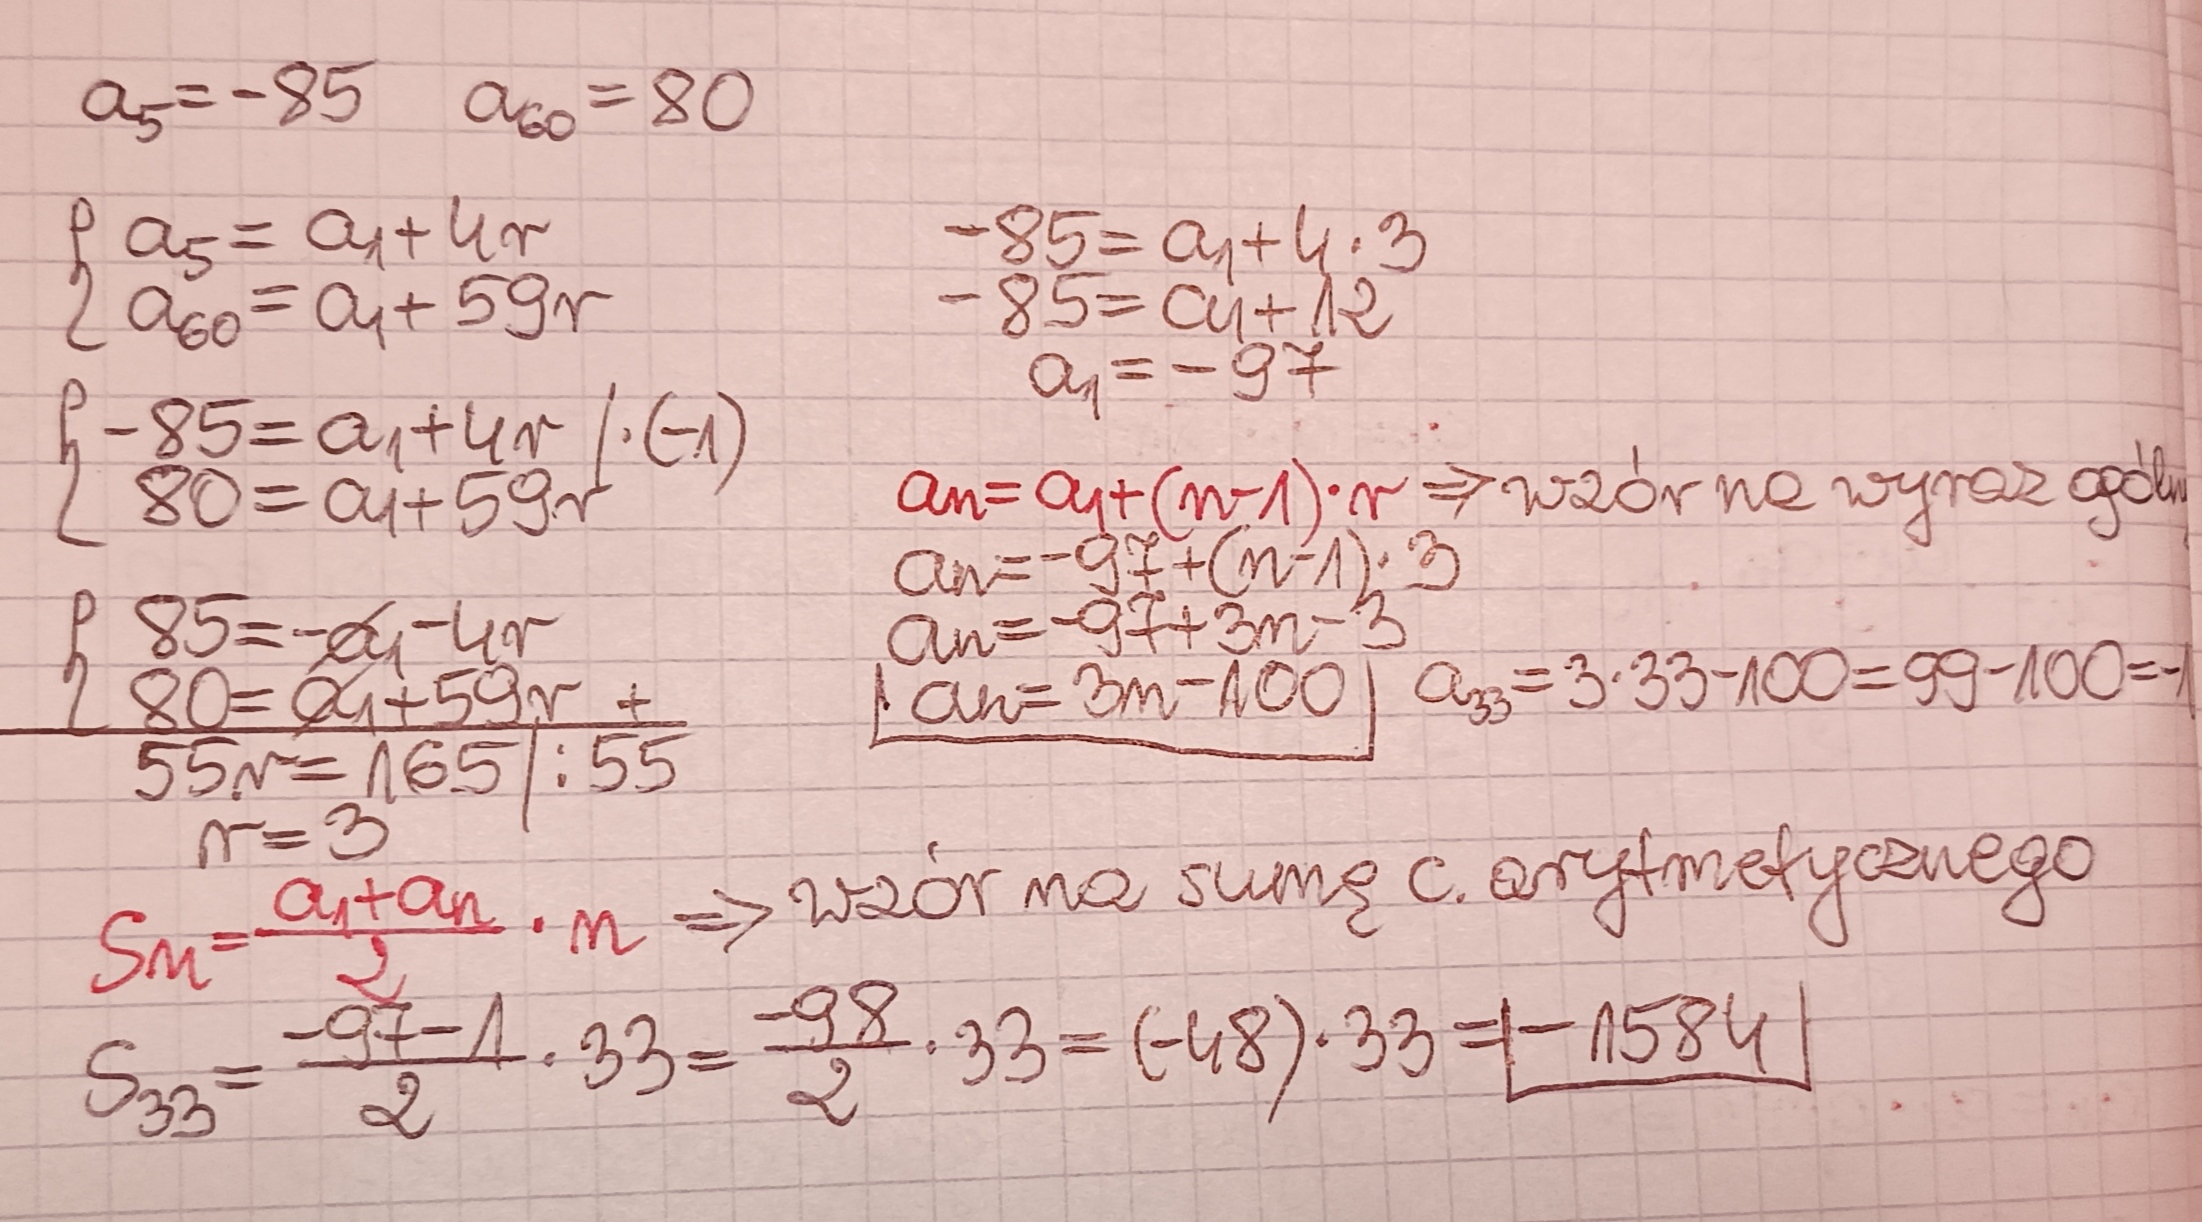 a₅=-85 a₆₀=80
{ a₅=a₁+4r
{ a₆₀=a₁+59r
{ -85=a₁+4r /·(-1)
{ 80=a₁+59r
{ 85=-a₁-4r
{ 80=a₁+59r +
55r=165/:55
r=3
-85=a₁+4·3
-85=a₁+12
a₁=-97
an=a₁+(n-1)·r => wzór na wyraz ogólny
an=-97+(n-1)·3
an=-97+3n-3
an=3n-100 a₃₃=3·33-100=99-100=-1
Sn=(a₁+an)/2 · n => wzór na sumę c. arytmetycznego
S₃₃=(-97-1)/2 · 33=(-98)/2 · 33=(-48)·33=-1584